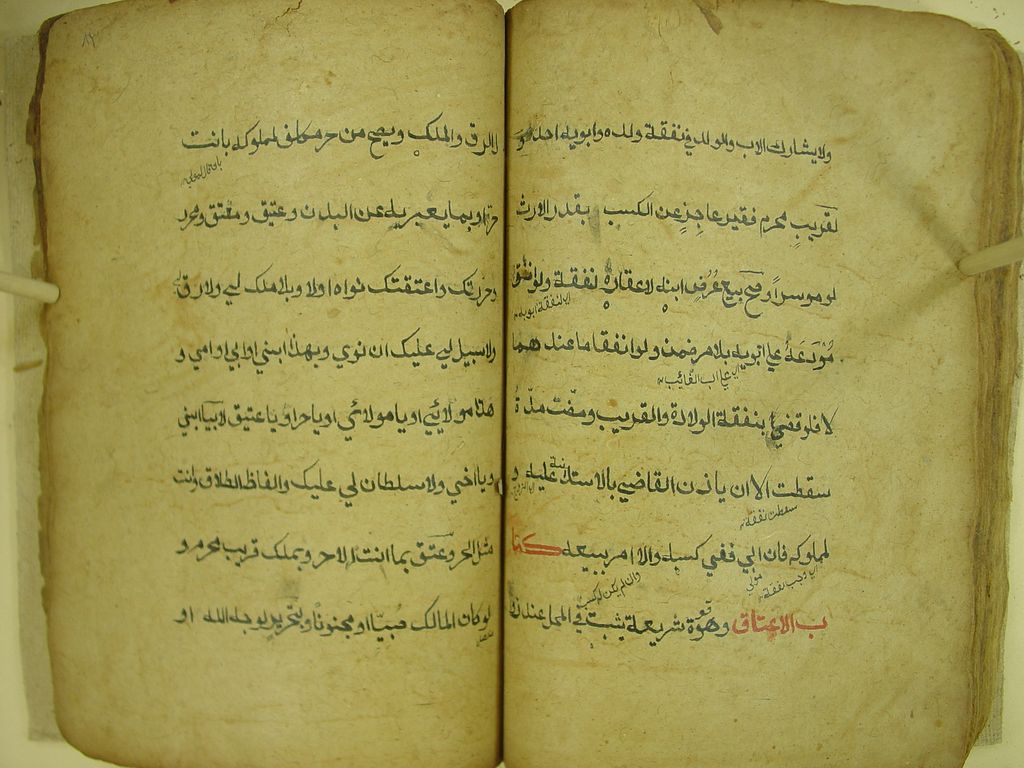 ولا يشارك الاب والولد في نفقة ولده وابويه احد و
لقريب محرم فقير عاجز عن الكسب بقدر الارث
لو موسرا وصح بيع عرض ابنه لا عقاره لنفقة ولو انفق
اى لنفقة ابويه
مودعه على ابويه بلا امر ضمن ولو انفقا ما عندهما
اى على اب الغائب
لا فلو قضي بنفقة الولادة والقريب ومضت مدة
سقطت الا ان ياذن القاضي بالاستدانة عليه و
سقطت نفقة
لمملوكه فان ابي ففي كسبه والا امر ببيعه كتا
اى وجب نفقة مولى
وان لم يكن له كسب
ب الاعتاق وهو قوة شريعة يثبت في المحل عند زو
٨٩
ال الرق والملك ويصح من حر مكلف لمملوكه بانت
حر او بما يعبر به عن البدن وعتيق ومعتق ومحرر
وحررتك واعتقتك نواه اولا وبلا ملك لي ولا رق
ولا سبيل لي عليك ان نوي وبهذا ابني او ابي او امي و
هذا مولائي او يا مولائي او يا حر او يا عتيق لا بيا ابني
ويا اخي ولا سلطان لي عليك والفاظ الطلاق وانت
مثل الحر وعتق بما انت الا حر وبملك قريب محرم و
لو كان المالك صبيا او مجنونا وبتحرير لوجه الله او